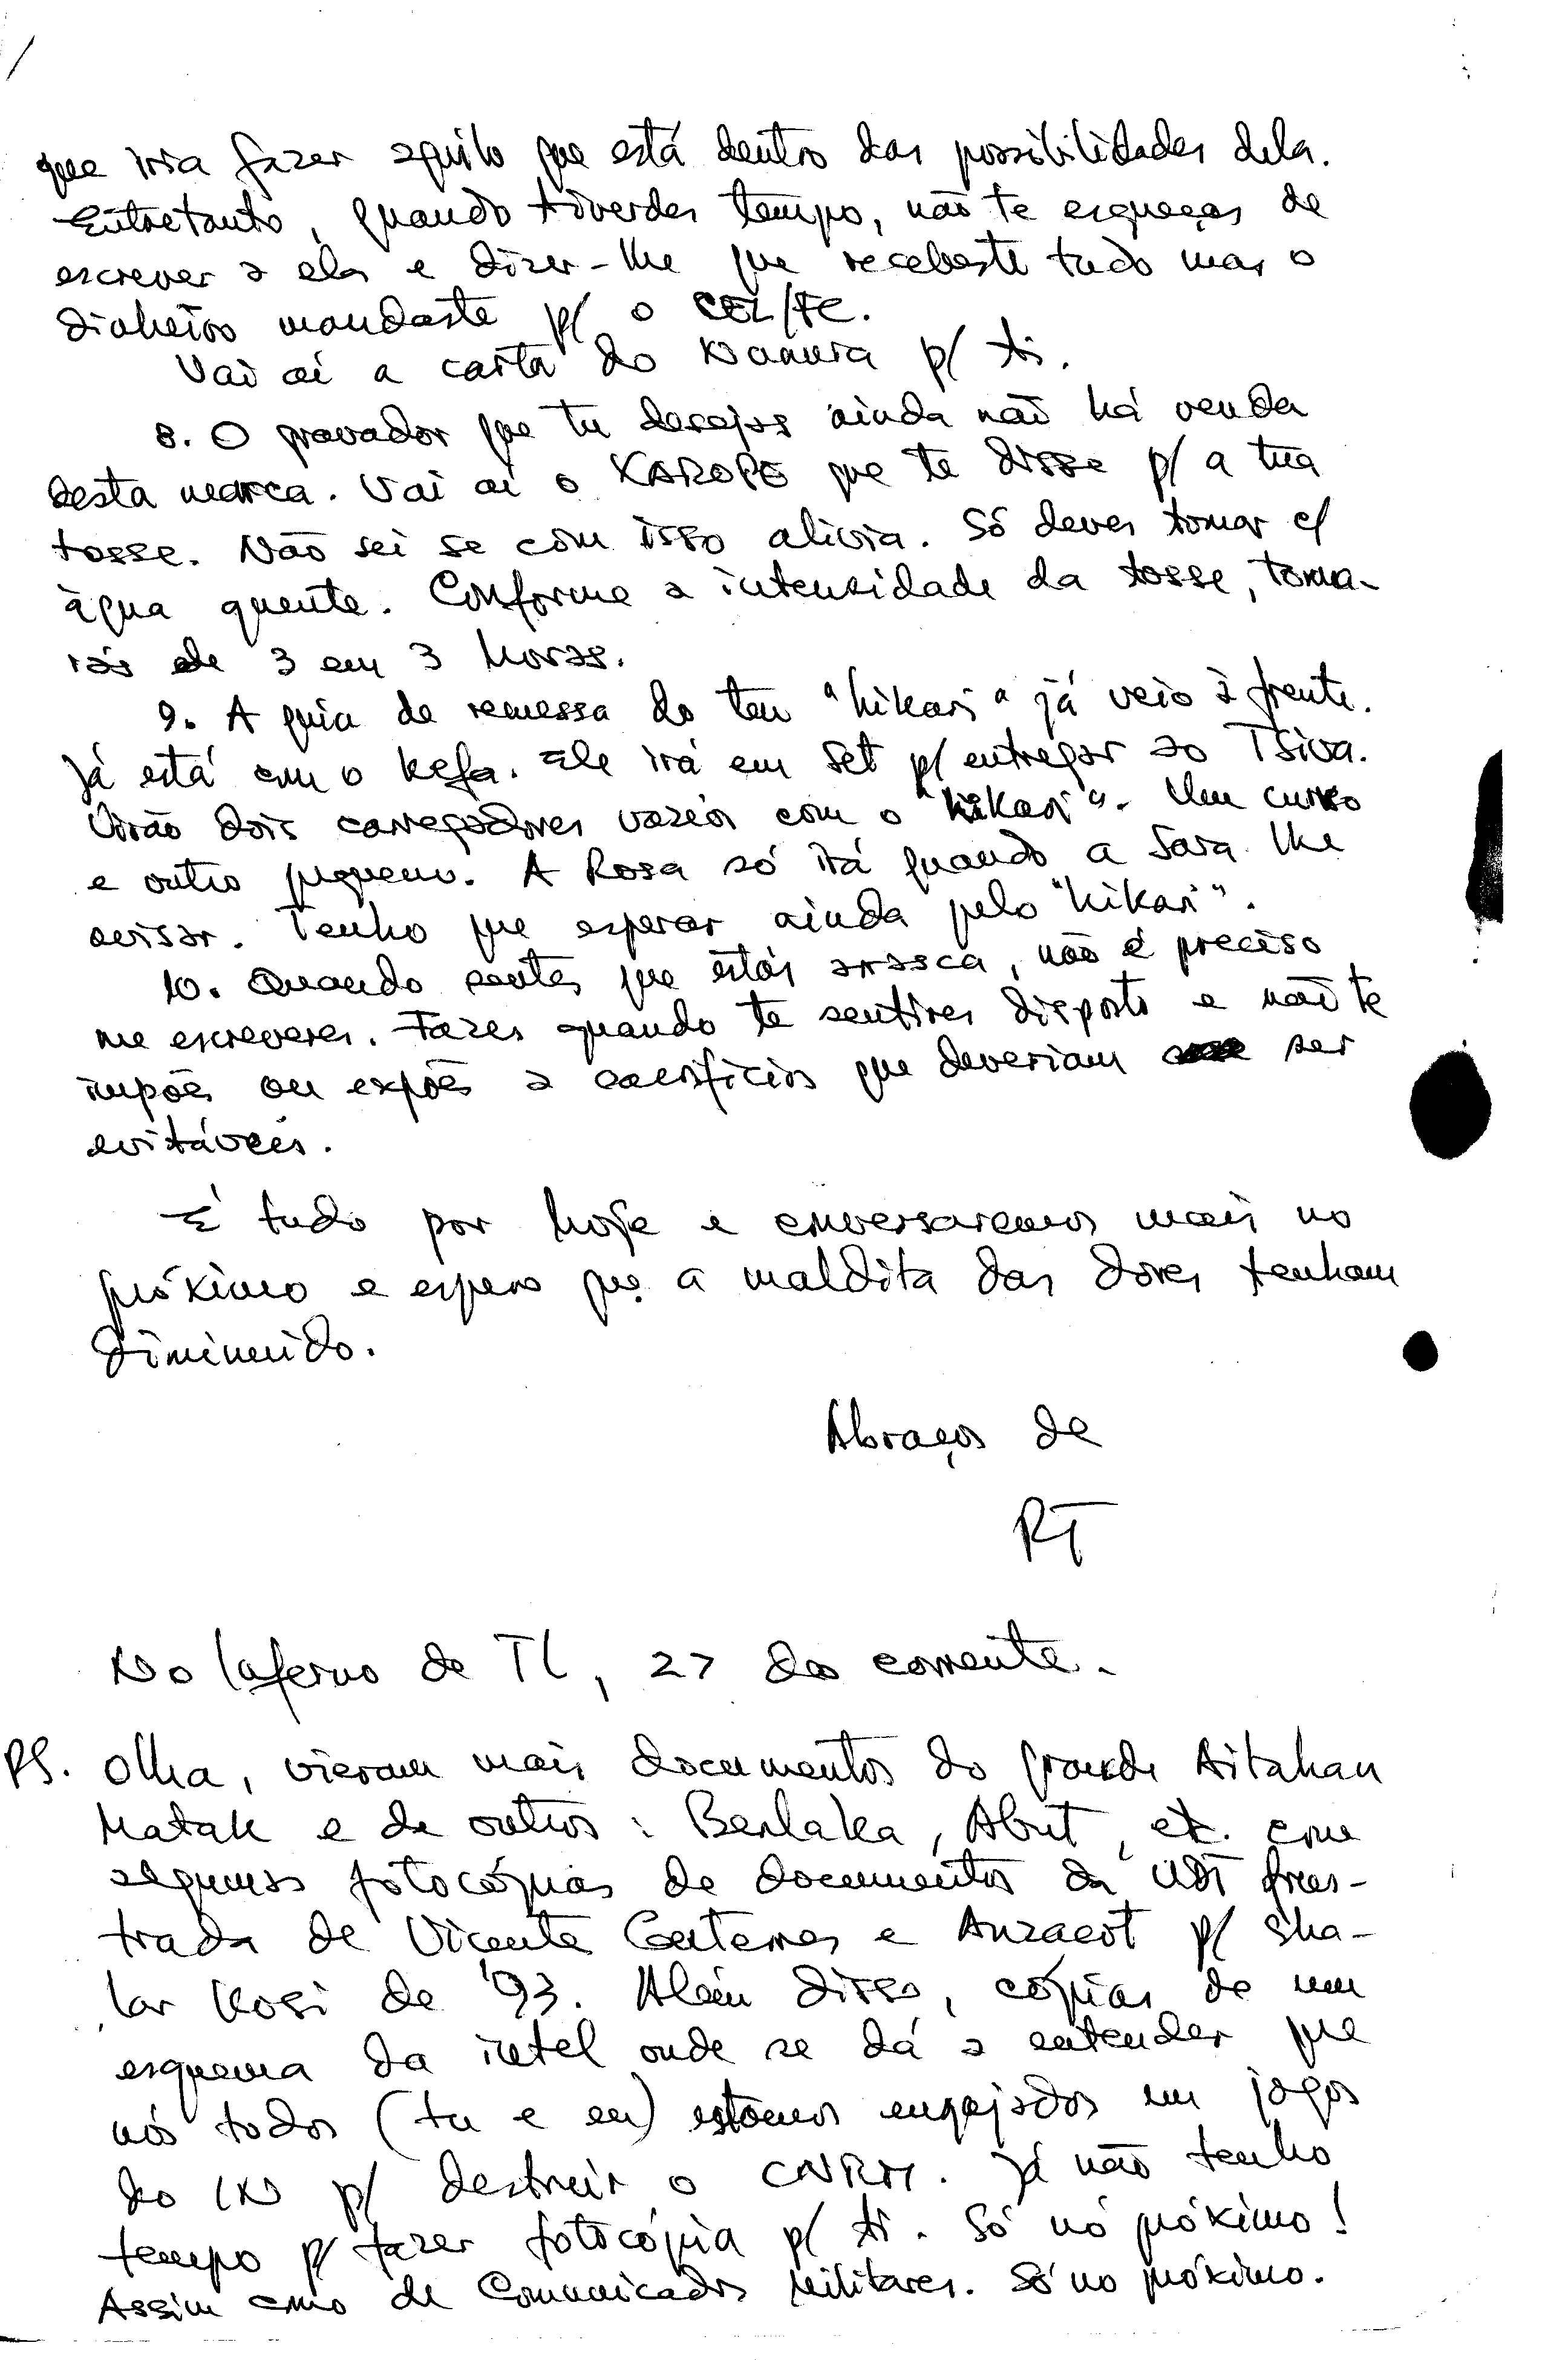 que iria fazer aquilo que está dentro das possibilidades dela.
Entretanto, quando tiverdes tempo, não te esqueças de
escrever a ela e dizer-lhe que recebeste tudo mas o
dinheiro mandaste p/ o CEL/FC.
Vai aí a carta do p/ ti.
8. O gravador que tu desejas ainda não há venda
desta marca. Vai aí o XAROPE que te disse p/ a tua
tosse. Não sei se com isso alivia. Só deves tomar c/
àgua quente. Conforme a intensidade da tosse, toma-
rás de 3 em 3 horas.
9. A guia de remessa do teu "hikari" já veio à frente.
Já está com o Kefa. Ele irá em Set p/ entregar ao Tsiva.
Virão dois carregadores vazios com o "hikari". Um curvo
e outro pequeno. A Rosa só irá quando a Sara lhe
avisar. Tenho que esperar ainda pelo "hikari".
10. Quando sentes que estás arrasca, não é preciso
me escreveres. Fazes quando te sentires disposto e não te
impões ou expões a sacrifícios que deveriam ser
evitáveis.
É tudo por hoje e conversaremos mais no
próximo e espero que a maldita das dores tenham
diminuido.
Abraços de
RT
No Inferno de TL, 27 do corrente.
PS. Olha, vieram mais documentos do grande Aitahan
Matak e de outros: Berlaka, Abut, etc. com
algumas fotocópias de documentos da UDT frus-
trada de Vicente Guterres e Anzacot p/ Sha-
lar Kosi de '93. Além disso, cópias de um
esquema da intel onde se dá a entender que
nós todos (tu e eu) estamos engajados em jogos
do IN p/ destruir o CNRM. Já não tenho
tempo p/ fazer fotocópia p/ ti. Só nó próximo!
Assim como de Comunicados Militares. Só no próximo.